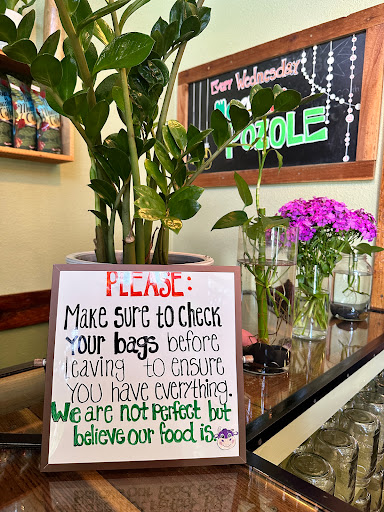 Every Wednesday
POZOLE
PLEASE:
Make sure to check
your bags before
leaving to ensure
you have everything.
We are not perfect but
believe our food is.